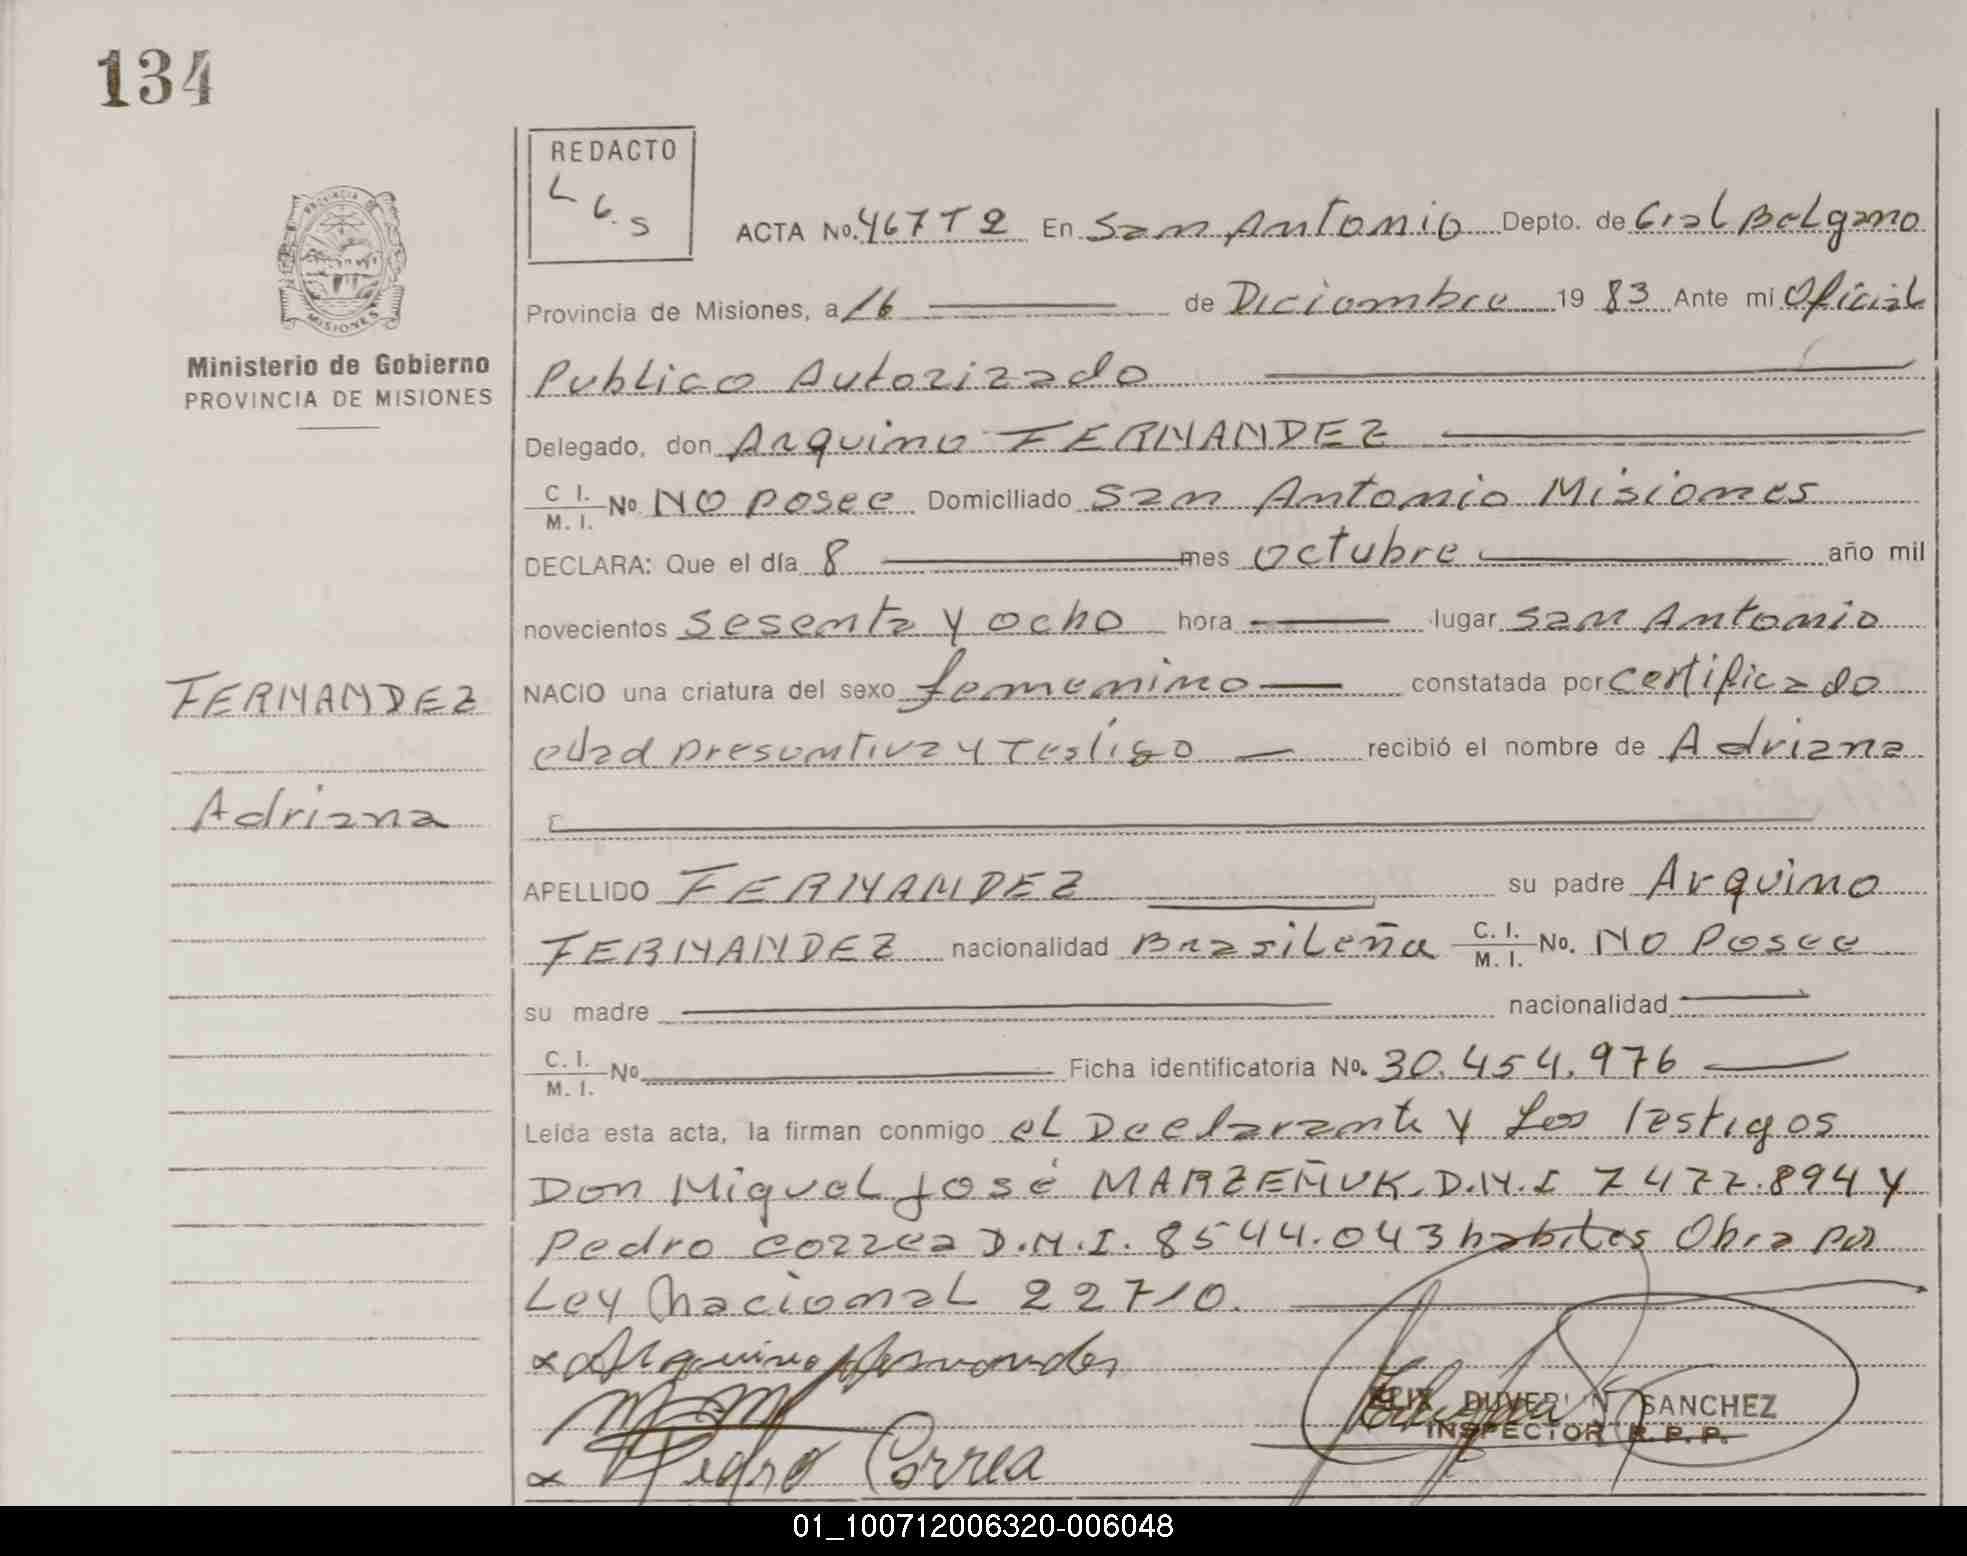 134
REDACTO
L G. S
PROVINCIA DE
MISIONES
Ministerio de Gobierno
PROVINCIA DE MISIONES
ACTA No. 467 T 2 En San Antonio Depto. de Gral Belgrano
Provincia de Misiones, a 16 de Diciembre 19 83 Ante mi Oficial
Publico Autorizado
Delegado, don Arquino FERNANDEZ
C I. / M. I. No NO posee Domiciliado San Antonio Misiones
DECLARA: Que el día 8 mes octubre año mil
novecientos sesenta y ocho hora lugar San Antonio
NACIO una criatura del sexo femenino constatada por certificado
edad presuntiva y testigo recibió el nombre de Adriana
FERNANDEZ
Adriana
APELLIDO FERNANDEZ su padre Arquino
FERNANDEZ nacionalidad Brasileña C. I. / M. I. No. NO Posee
su madre nacionalidad
C. I. / M. I. No Ficha identificatoria No. 30.454.976
Leída esta acta, la firman conmigo el Declarante y Los Testigos
Don Miguel José MARZEÑUK. D.N.I 7472.894 y
Pedro Correa D.N.I. 8544.043 habiles Obra por
Ley Nacional 22710.
x Arquino Fernandes
x Pedro Correa
SANCHEZ
INSPECTOR R. P. P.
01_100712006320-006048